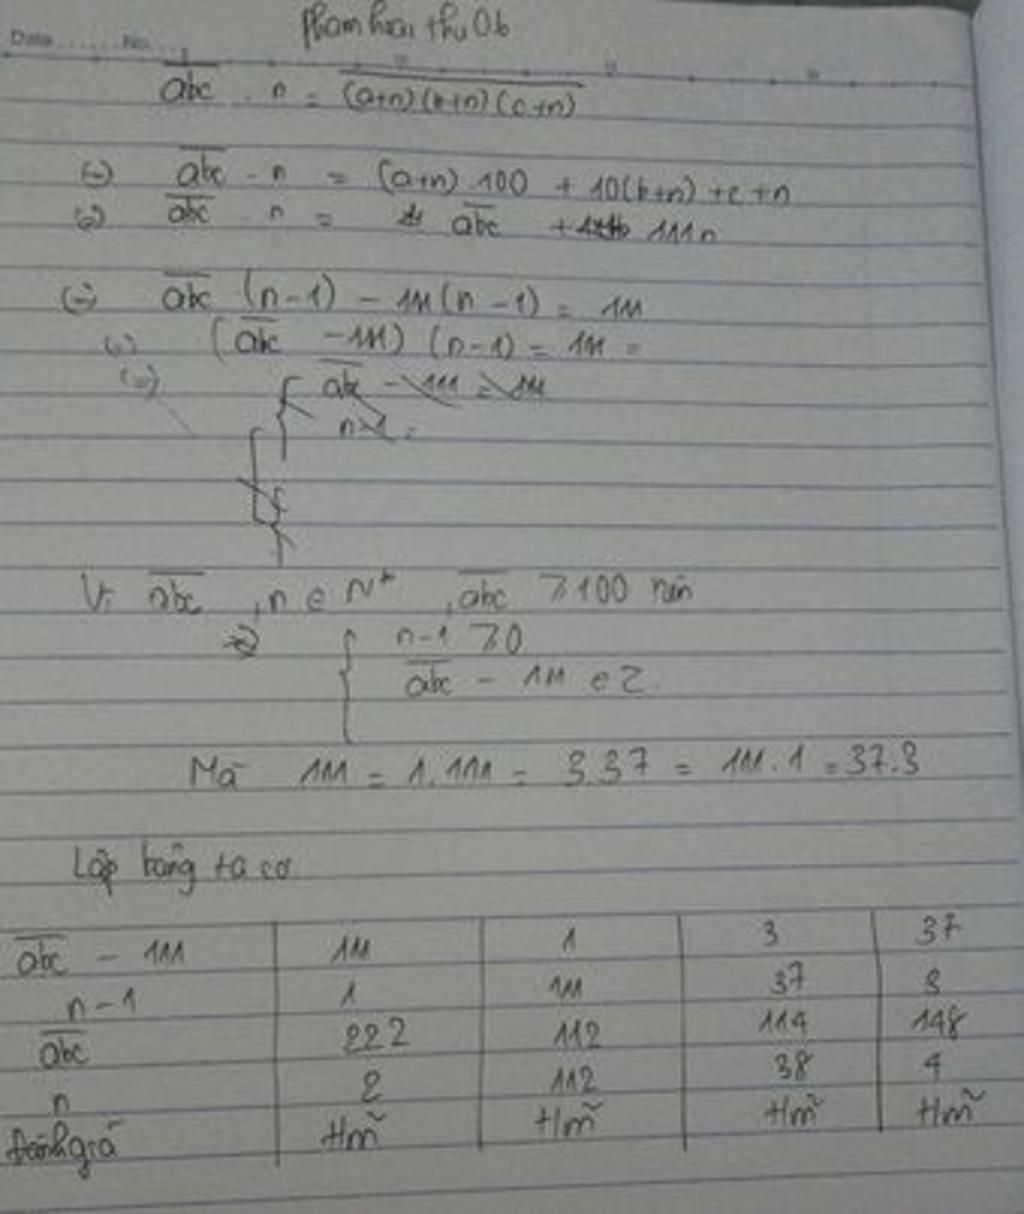 Date ...... No. ...
abc . n = (a+n)(b+n)(c+n)
(=) abc . n = (a+n) 100 + 10(b+n) + c + n
(=) abc . n = abc + 111n
(=) abc (n-1) - 111(n-1) = 111
(=) (abc - 111) (n-1) = 111 =
(=) abc - 111 = 111
n-1 =
Vì abc , n ∈ N* , abc ≥ 100 nên
=> n-1 ≥ 0
abc - 111 ∈ Z
Mà 111 = 1.111 = 3.37 = 111.1 = 37.3
Lập bảng ta có
abc - 111 111 1 3 37
n-1 1 111 37 3
abc 222 112 114 148
n 2 112 38 4
Đánh giá t/m t/m t/m t/m